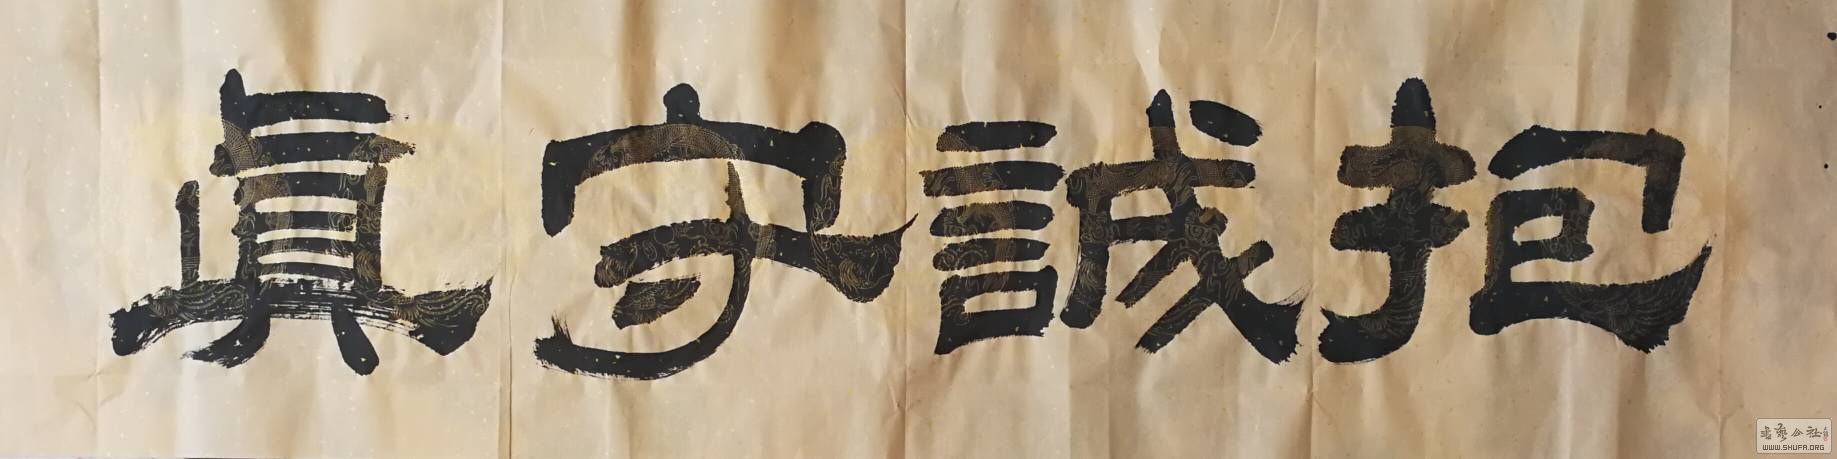 抱誠守真
書艺公社
WWW.SHUFA.ORG